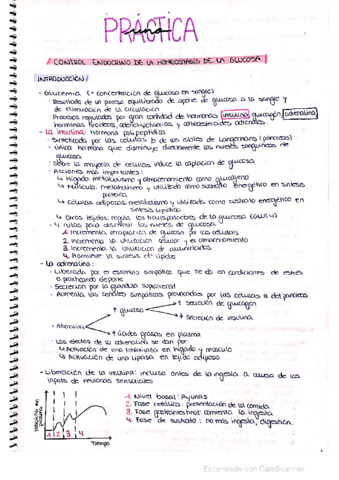 PRÁCTICA
uno
CONTROL ENDOCRINO DE LA HOMEOSTASIS DE LA GLUCOSA
INTRODUCCIÓN
- Glucemia (= concentración de glucosa en sangre)
- Resultado de un proceso equilibrado de aporte de glucosa a la sangre y
de eliminación de la circulación
- Procesos regulados por gran cantidad de hormonas: insulina, glucagón, adrenalina,
hormonas tiroideas, adenohipofisarias y corticosteroides adrenales.
- La insulina: hormona polipeptídica
- Sintetizada por las células b de los islotes de Langerhans (páncreas)
- Única hormona que disminuye directamente los niveles sanguíneos de
glucosa
- Sobre la mayoría de células induce la captación de glucosa
- Acciones más importantes:
↳ Hígado: metabolismo y almacenamiento como glucógeno
↳ Músculo: metabolismo y utilizado como sustrato energético en síntesis
proteica
↳ Células adiposas: metabolismo y utilizado como sustrato energético en
síntesis lipídica
↳ Otros tejidos: regula los transportadores de la glucosa (GLUT4)
- 4 rutas para disminuir los niveles de glucosa
1. Incrementa captación de glucosa por las células
2. Incrementa la utilización celular y el almacenamiento
3. Incrementa la utilización de aminoácidos
4. Promueve la síntesis de lípidos
- La adrenalina:
- Liberada por el estímulo simpático que se da en condiciones de estrés
o practicando deporte
- Secreción por la glándula suprarrenal
- Aumenta las señales simpáticas provocadas por las células α del páncreas.
↑ secreción de glucagón
↑ glucosa
↓ secreción de insulina
- Adrenalina
↑ ácidos grasos en plasma
- Los efectos de la adrenalina se dan por:
↳ Activación de una fosforilasa en hígado y músculo
↳ Activación de una lipasa en tejido adiposo
- Liberación de la insulina: incluso antes de la ingesta a causa de los
inputs de neuronas sensoriales
1. Nivel basal: Ayunas
2. Fase cefálica: presentación de la comida
3. Fase gastrointestinal: comienza la ingesta
4. Fase de sustrato: no más ingesta, digestión.
1 2 3 4
Tiempo
Escaneado con CamScanner